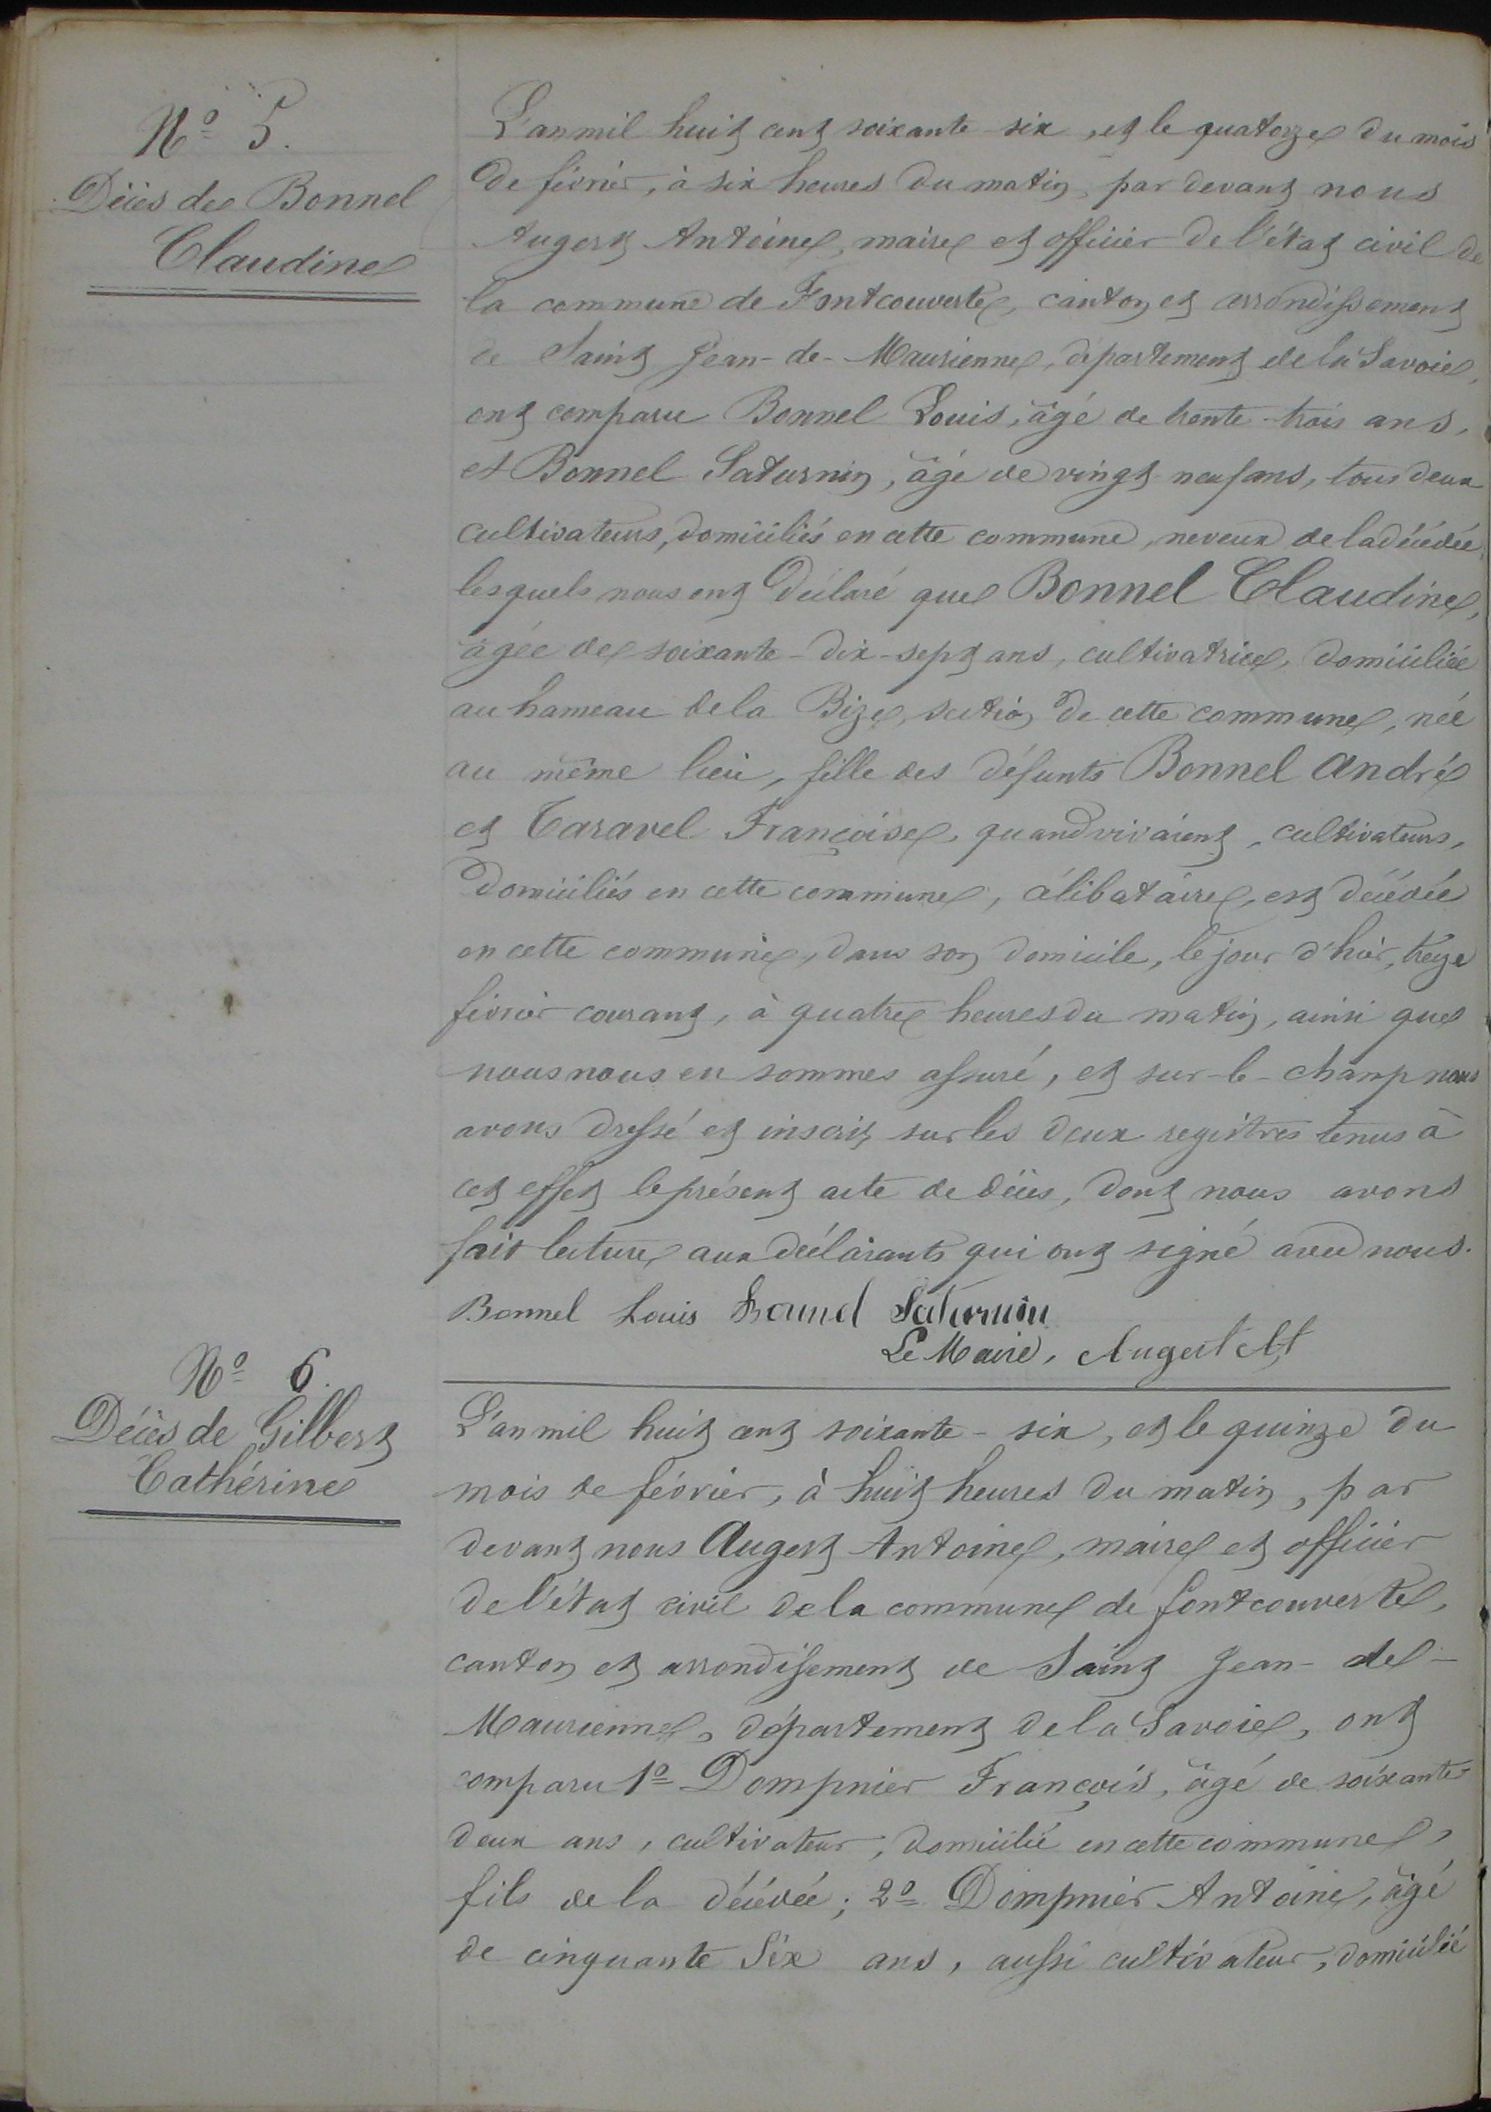 Nº 5.
Décès de Bonnel
Claudine
L'an mil huit cent soixante six, et le quatorze du mois
de février, à six heures du matin, par devant nous
Augert Antoine, maire et officier de l'état civil de
la commune de Fontcouverte, canton et arrondissement
de Saint Jean-de-Maurienne, département de la Savoie,
ont comparu Bonnel Louis, âgé de trente-trois ans,
et Bonnel Saturnin, âgé de vingt neuf ans, tous deux
cultivateurs, domiciliés en cette commune, neveux de la décédée,
lesquels nous ont déclaré que Bonnel Claudine,
âgée de soixante-dix-sept ans, cultivatrice, domiciliée
au hameau de la Bize, section de cette commune, née
au même lieu, fille des défunts Bonnel André
et Taravel Françoise, quand vivaient, cultivateurs,
domiciliés en cette commune, célibataire, est décédée
en cette commune, dans son domicile, le jour d'hier, treize
février courant, à quatre heures du matin, ainsi que
nous nous en sommes assuré, et sur-le-champ nous
avons dressé et inscrit sur les deux registres tenus à
cet effet le présent acte de décès, dont nous avons
fait lecture aux déclarants qui ont signé avec nous.
Bonnel Louis Bonnel Saturnin
Le Maire, Augert Ant
Nº 6.
Décès de Gilbert
Cathérine
L'an mil huit cent soixante-six, et le quinze du
mois de février, à huit heures du matin, par
devant nous Augert Antoine, maire et officier
de l'état civil de la commune de fontcouverte,
canton et arrondissement de Saint Jean-de-
Maurienne, département de la Savoie, ont
comparu 1º Dompnier François, âgé de soixante-
deux ans, cultivateur, domicilié en cette commune,
fils de la décédée; 2º Dompnier Antoine, âgé
de cinquante Six ans, aussi cultivateur, domicilié